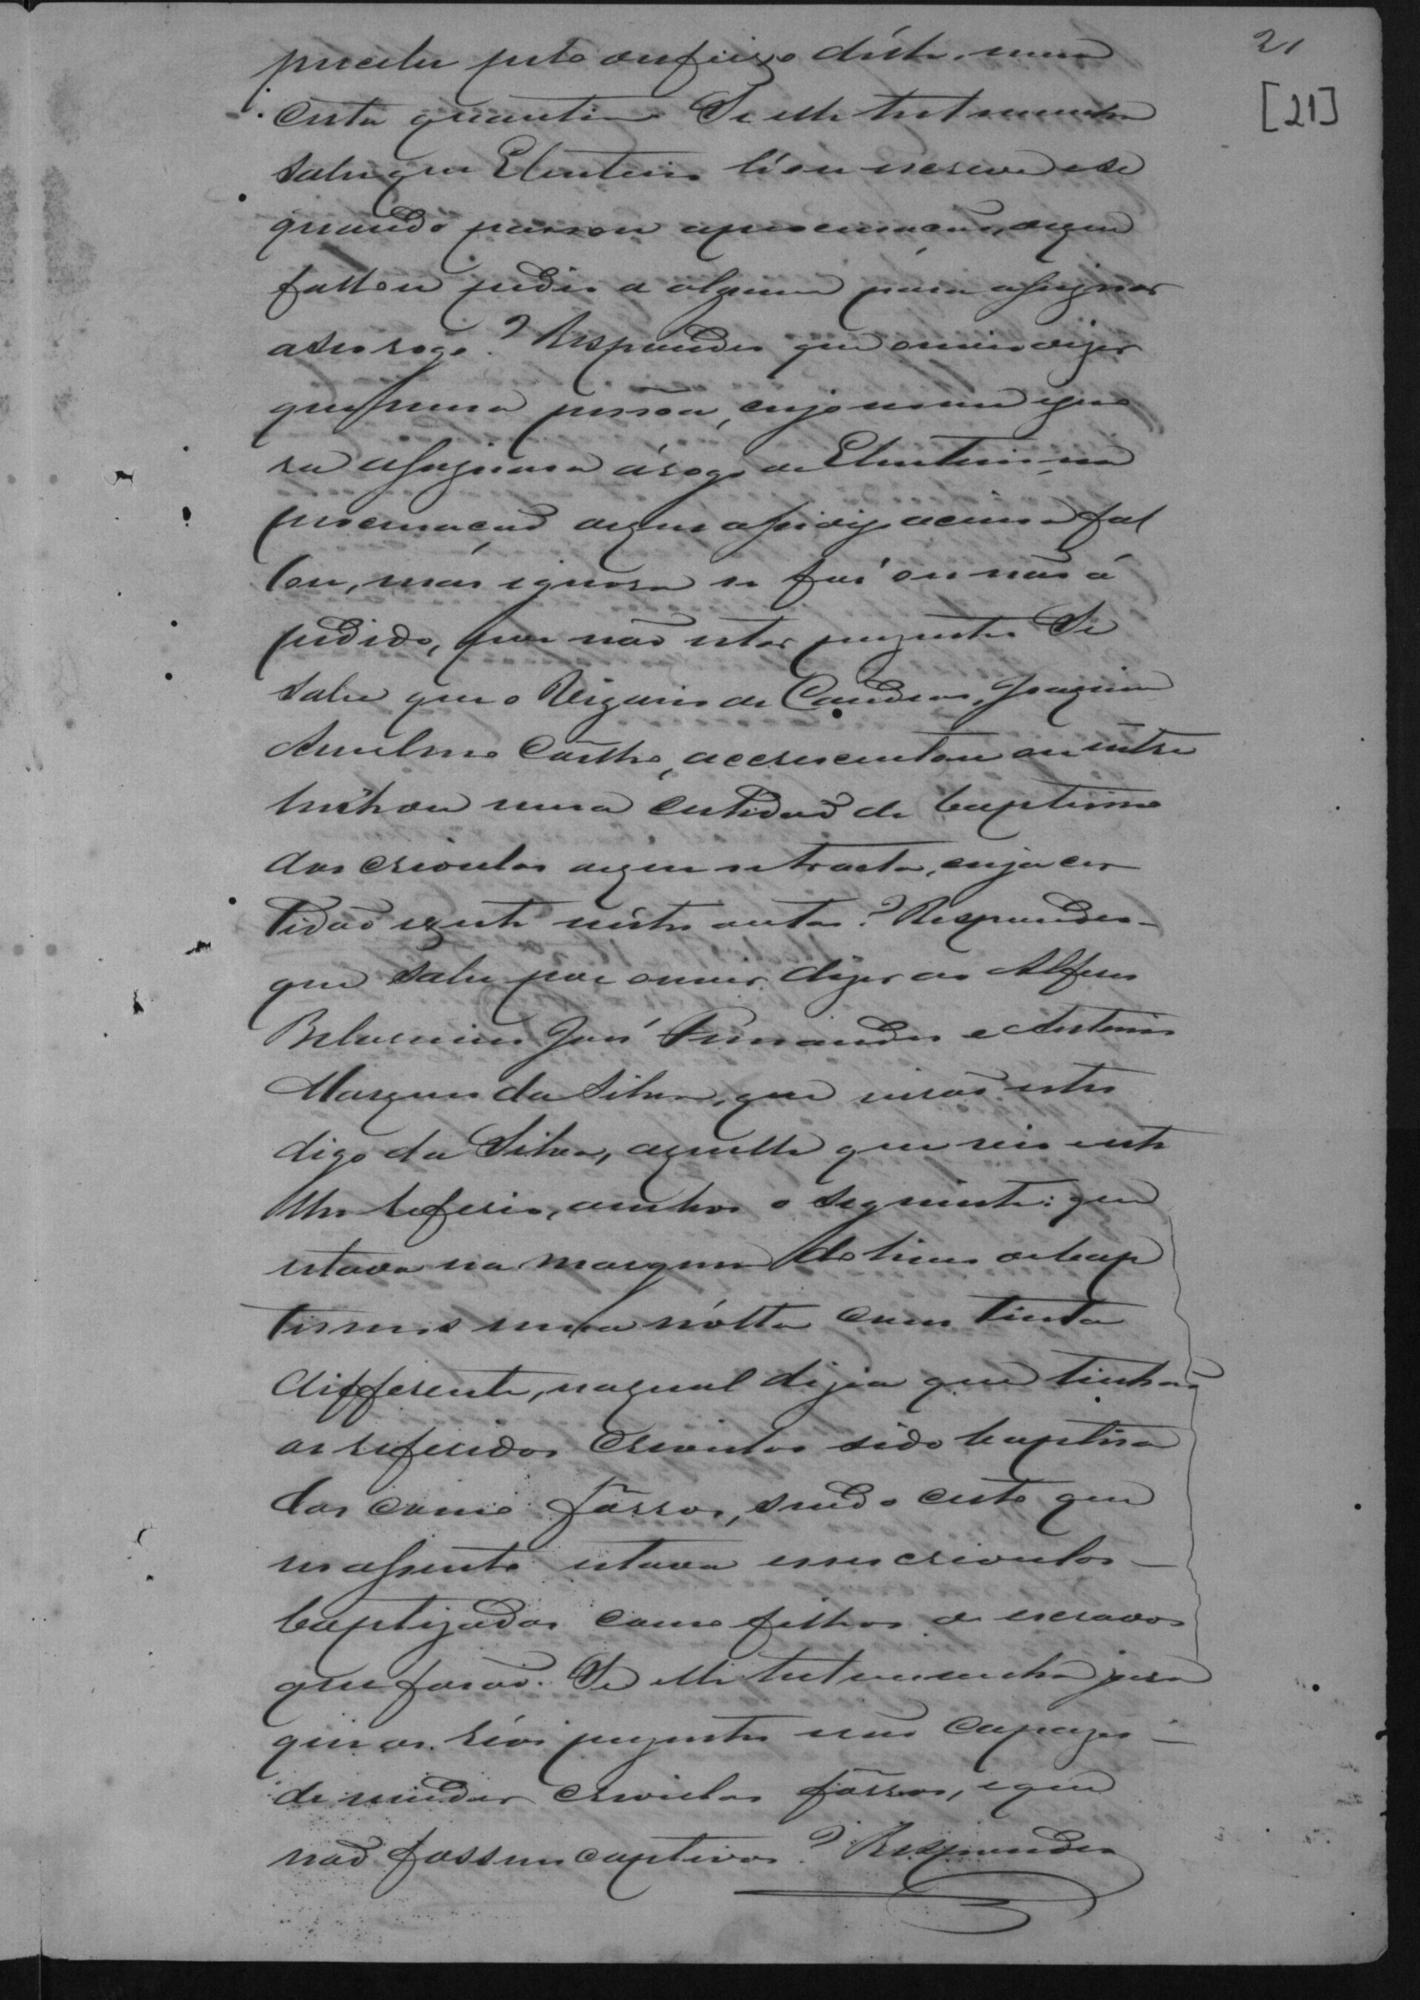 21
[21]
certa quantia Se elle testemunha
sabe que Eleuterio lê ou escreve e se
quando passou a procuração, a que
fallou pedio a alguem para assignar
a seo rogo? Respondeo que ouvio dizer
que huma pessôa, cujo nome igno
ra assignara á rogo de Eleuterio, na
procuração a que assim digo acima fal
lou, más ignora se foi ou não á
pedido, por não estar prezente. Se
sabe que o Vigario de Candeas, Joaquim
Anselmo Coêlho, accrescentou ou entre
linhou uma certidão de baptismo
dos crioulos a que se tracta, cuja cer
tidão existe néstes autos? Respondeo
que sabe por ouvir dizer ao Alferes
Belarmino José Fernandes e Antonio
Marques da Silva, que virão estes
digo da Silva, aquelle que vio e este
lhe referio, ambos o seguinte: que
estava na margem do livro de bap
tismos uma nótta com tinta
differente, na qual dizia que tinhão
os referidos crioulos sido baptisa
dos como fôrros, sendo certo que
no assento estava esses crioulos
baptizados como filhos de escravos
que forão. Se elle testemunha jura
que os réos prezentes são capazes
de vender crioulos fôrros, e que
não fossem captivos? Respondeo